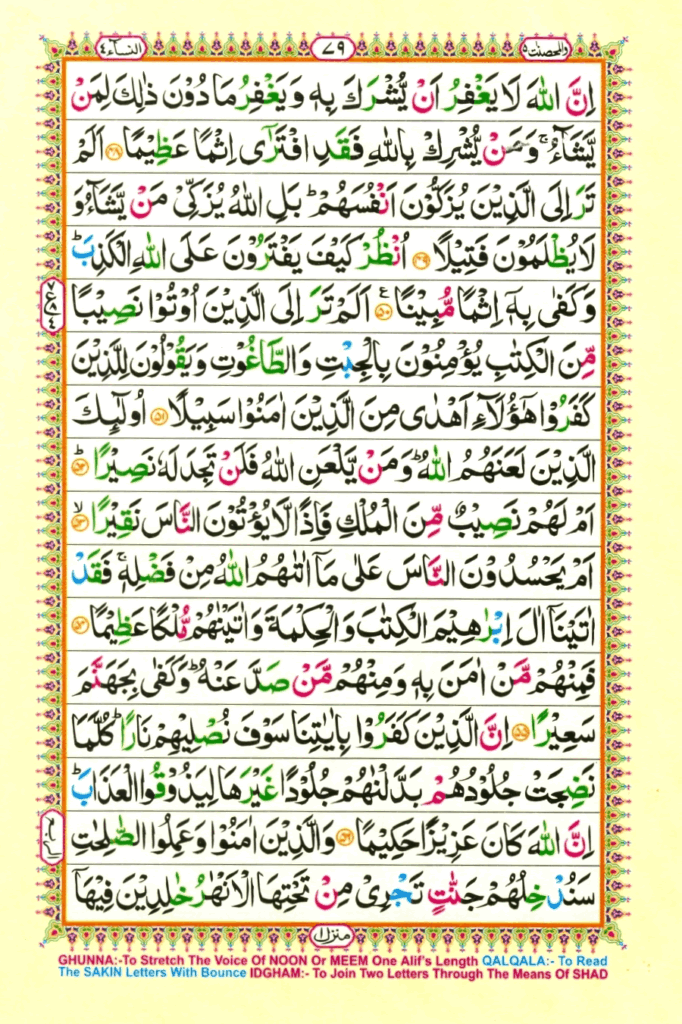 والمحصنت ٥
٧٩
النسآء ٤
اِنَّ اللّٰهَ لَا يَغْفِرُ اَنْ يُّشْرَكَ بِهٖ وَيَغْفِرُ مَا دُوْنَ ذٰلِكَ لِمَنْ
يَّشَآءُ ۚ وَمَنْ يُّشْرِكْ بِاللّٰهِ فَقَدِ افْتَرٰٓى اِثْمًا عَظِيْمًا ﴿٤٨﴾ اَلَمْ
تَرَ اِلَى الَّذِيْنَ يُزَكُّوْنَ اَنْفُسَهُمْ ؕ بَلِ اللّٰهُ يُزَكِّىْ مَنْ يَّشَآءُ وَ
لَا يُظْلَمُوْنَ فَتِيْلًا ﴿٤٩﴾ اُنْظُرْ كَيْفَ يَفْتَرُوْنَ عَلَى اللّٰهِ الْكَذِبَ ؕ
وَكَفٰى بِهٖٓ اِثْمًا مُّبِيْنًا ﴿٥٠﴾ ع اَلَمْ تَرَ اِلَى الَّذِيْنَ اُوْتُوْا نَصِيْبًا
مِّنَ الْكِتٰبِ يُؤْمِنُوْنَ بِالْجِبْتِ وَالطَّاغُوْتِ وَيَقُوْلُوْنَ لِلَّذِيْنَ
كَفَرُوْا هٰٓؤُلَآءِ اَهْدٰى مِنَ الَّذِيْنَ اٰمَنُوْا سَبِيْلًا ﴿٥١﴾ اُولٰٓئِكَ
الَّذِيْنَ لَعَنَهُمُ اللّٰهُ ؕ وَمَنْ يَّلْعَنِ اللّٰهُ فَلَنْ تَجِدَ لَهٗ نَصِيْرًا ﴿٥٢﴾ ؕ
اَمْ لَهُمْ نَصِيْبٌ مِّنَ الْمُلْكِ فَاِذًا لَّا يُؤْتُوْنَ النَّاسَ نَقِيْرًا ﴿٥٣﴾ ۙ
اَمْ يَحْسُدُوْنَ النَّاسَ عَلٰى مَآ اٰتٰىهُمُ اللّٰهُ مِنْ فَضْلِهٖ ۚ فَقَدْ
اٰتَيْنَآ اٰلَ اِبْرٰهِيْمَ الْكِتٰبَ وَالْحِكْمَةَ وَاٰتَيْنٰهُمْ مُّلْكًا عَظِيْمًا ﴿٥٤﴾
فَمِنْهُمْ مَّنْ اٰمَنَ بِهٖ وَمِنْهُمْ مَّنْ صَدَّ عَنْهُ ؕ وَكَفٰى بِجَهَنَّمَ
سَعِيْرًا ﴿٥٥﴾ اِنَّ الَّذِيْنَ كَفَرُوْا بِاٰيٰتِنَا سَوْفَ نُصْلِيْهِمْ نَارًا ؕ كُلَّمَا
نَضِجَتْ جُلُوْدُهُمْ بَدَّلْنٰهُمْ جُلُوْدًا غَيْرَهَا لِيَذُوْقُوا الْعَذَابَ ؕ
اِنَّ اللّٰهَ كَانَ عَزِيْزًا حَكِيْمًا ﴿٥٦﴾ وَالَّذِيْنَ اٰمَنُوْا وَعَمِلُوا الصّٰلِحٰتِ
سَنُدْخِلُهُمْ جَنّٰتٍ تَجْرِىْ مِنْ تَحْتِهَا الْاَنْهٰرُ خٰلِدِيْنَ فِيْهَآ
منزل ١
GHUNNA:-To Stretch The Voice Of NOON Or MEEM One Alif's Length QALQALA:- To Read
The SAKIN Letters With Bounce IDGHAM:- To Join Two Letters Through The Means Of SHAD